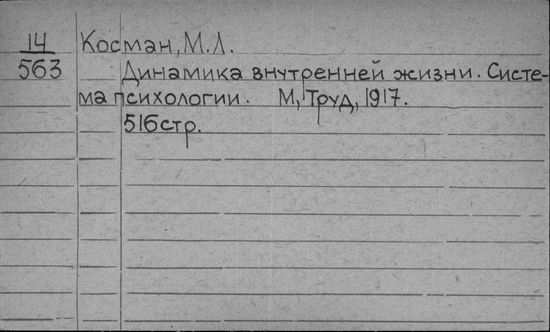 14 Косман, М.Л.
563 Динамика внутренней жизни. Систе-
ма психологии. М, Труд, 1917.
516стр.